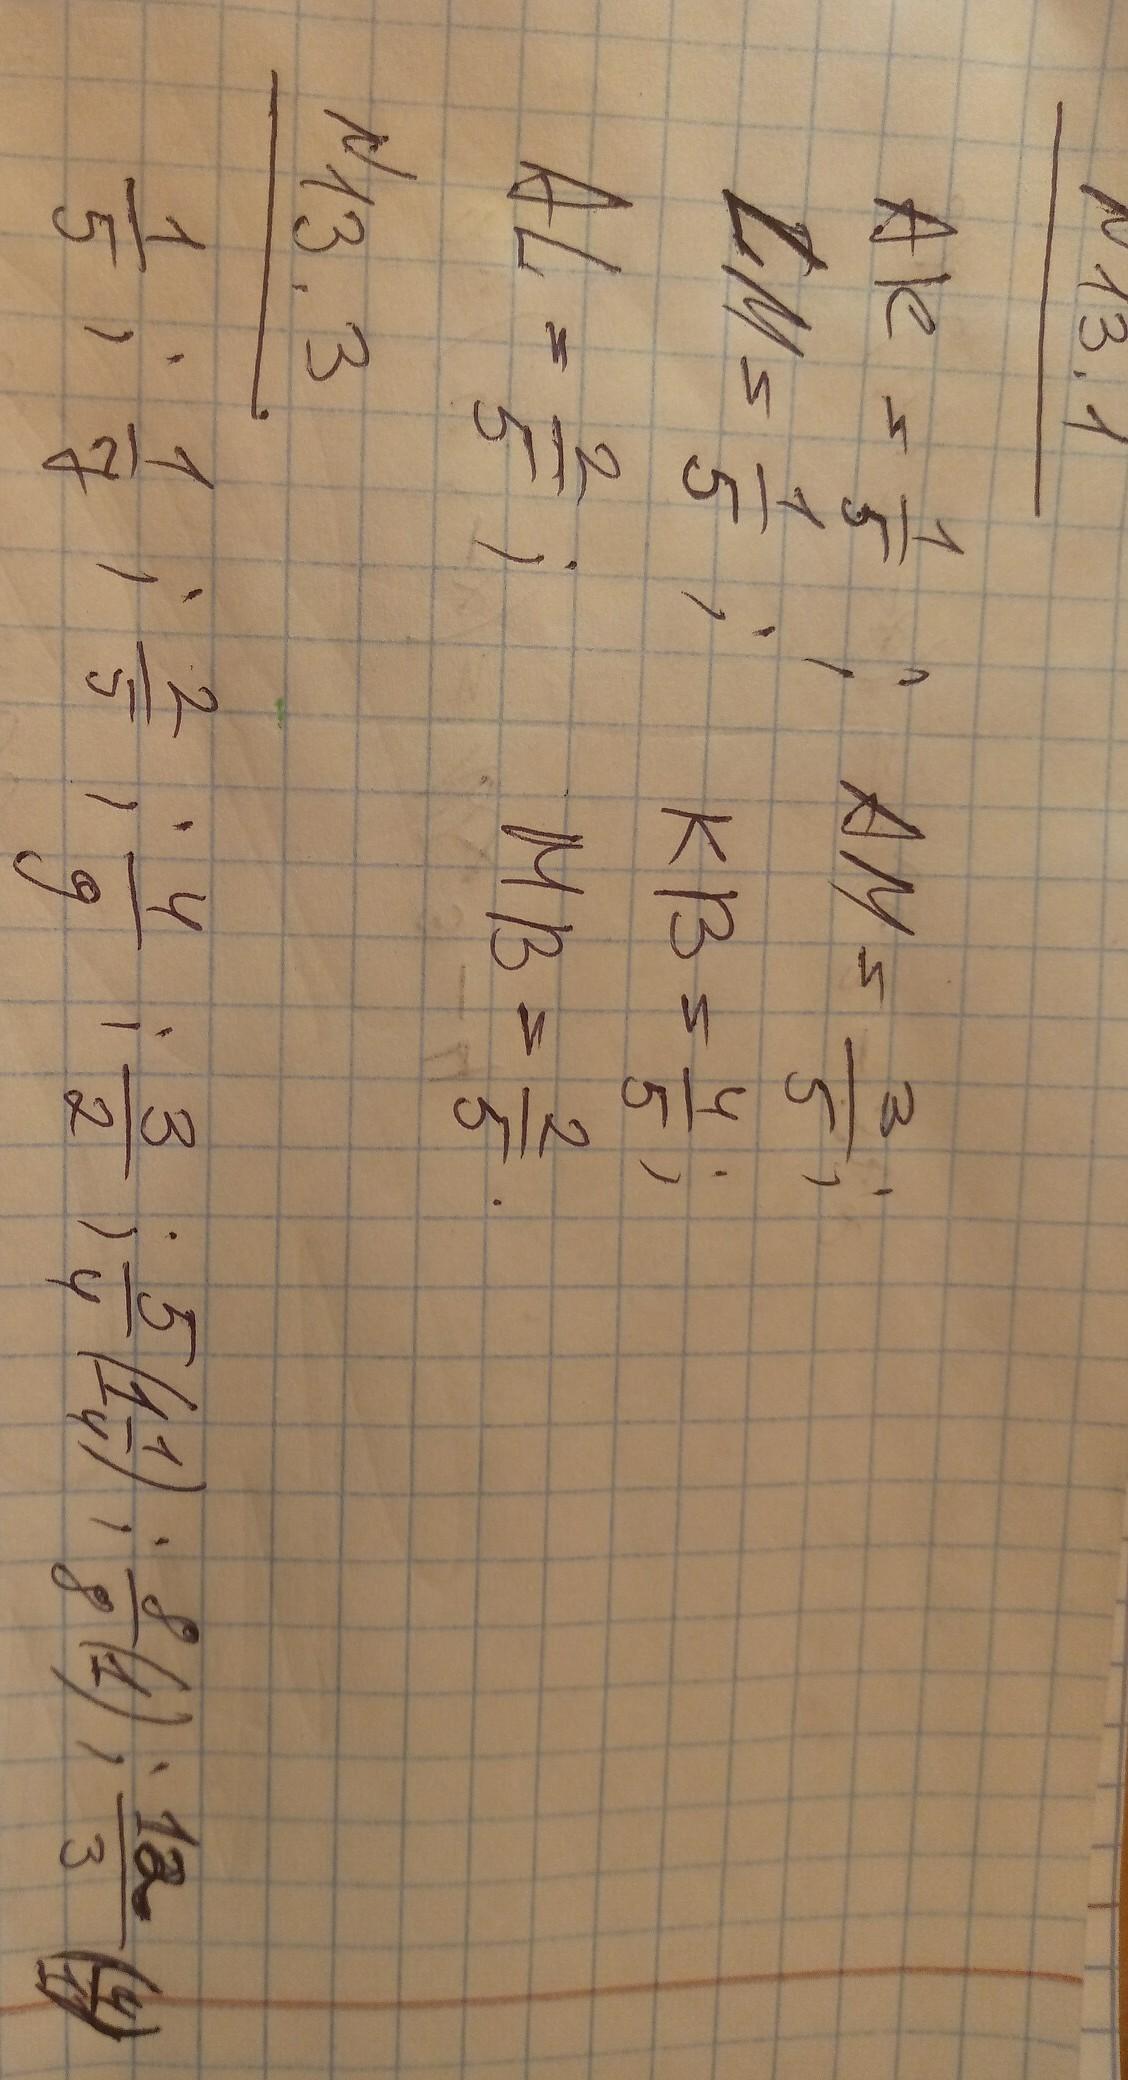 N13.1
AK = 1/5 ; AM = 3/5 ;
LM = 1/5 ; KB = 4/5 ;
AL = 2/5 ; MB = 2/5 .
N13.3
1/5 ; 1/2 ; 2/5 ; 4/9 ; 3/2 ; 5/4 (1 1/4) ; 8/8 (1) ; 12/3